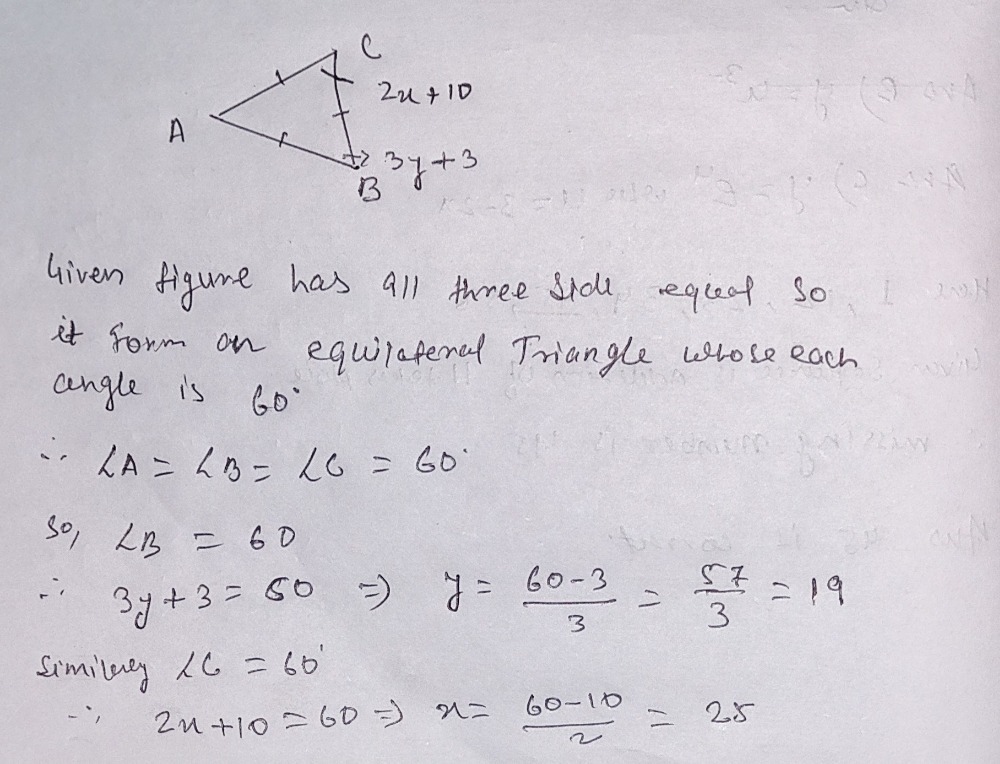 C
2x+10
A
3y+3
B
Given figure has all three side equal so
it form an equilateral Triangle whose each
angle is 60°
∴ ∠A = ∠B = ∠C = 60°
So, ∠B = 60
∴ 3y+3 = 60 ⇒ y = 60-3/3 = 57/3 = 19
Similerey ∠C = 60°
∴ 2x+10 = 60 ⇒ x = 60-10/2 = 25